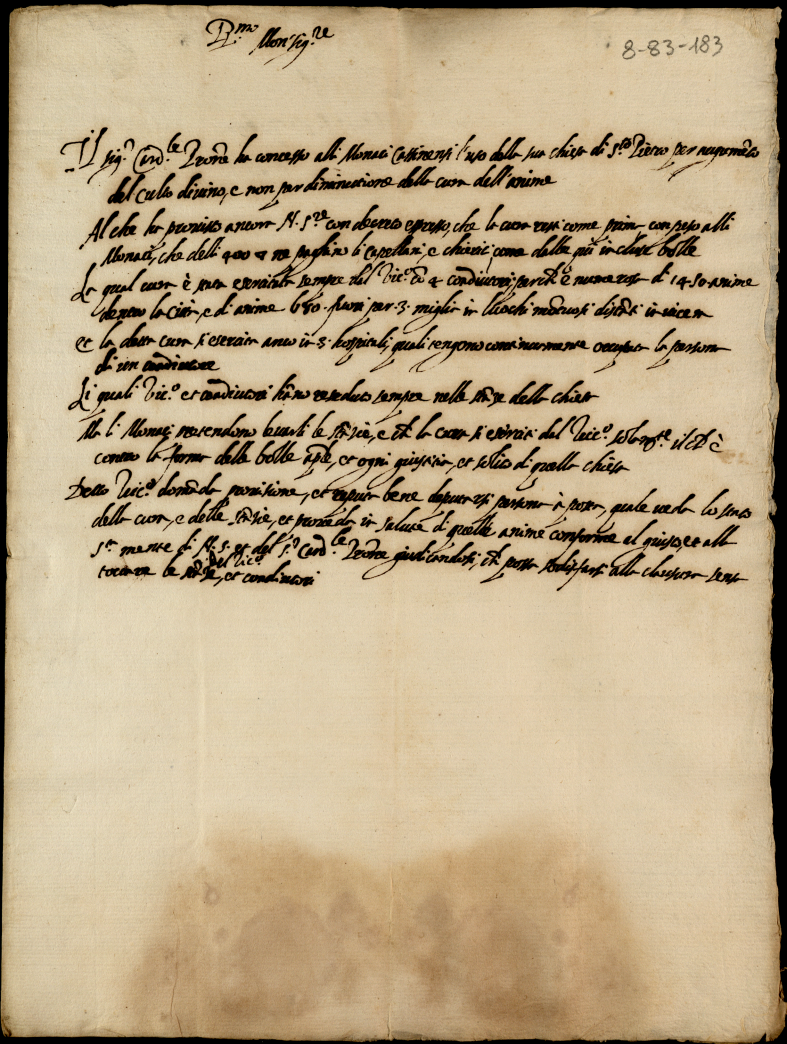 R.mo Mons.re
8-83-183
Il sig.r Card.le ha concesso alli Monaci Cassinensi l'uso della sua chiesa di S.to Pietro per augumẽto
del culto divino, e non per diminutione della cura dell'anime
Al che ha provisto ancora N. S.re con decreto espresso, che la cura resti come prima con peso alli
Monaci, che delli 400 ne paghino li Capellani, e chierici come dalle più incluse bolle
La qual cura è stata esercitata sempre dal Vic.o et 4 coadiutori, perchè è numerosa di 1450 anime
dentro la città, e di anime 680 fuora per 3 miglia in luochi distãti
et la detta cura si esercita anco in 3 hospitali, quali tengono continuamente occupata la persona
di un coadiutore
Li quali Vic.o et coadiutori hãno reseduto sempre nelle stãze della chiesa
Ma li Monaci pretendono levarli le stãzie, e chẽ la cura si eserciti dal Vic.o sol.te il chẽ è
contro la forma delle bolle ap.le, et ogni giustitia, et solito di quella chiesa
Detto Vic.o domãda provisione, et reputa bene deputarsi persona à posta, quale veda lo stato
della cura, e delle stãzie, et proveda in salute di quelle anime conforme al giusto, et alla
s.ta mente di N. S. et del S.r Card.le giudicandosi, chẽ possa sodisfarsi alla clausura senza
toccare le stãze del Vic.o, et coadiutori